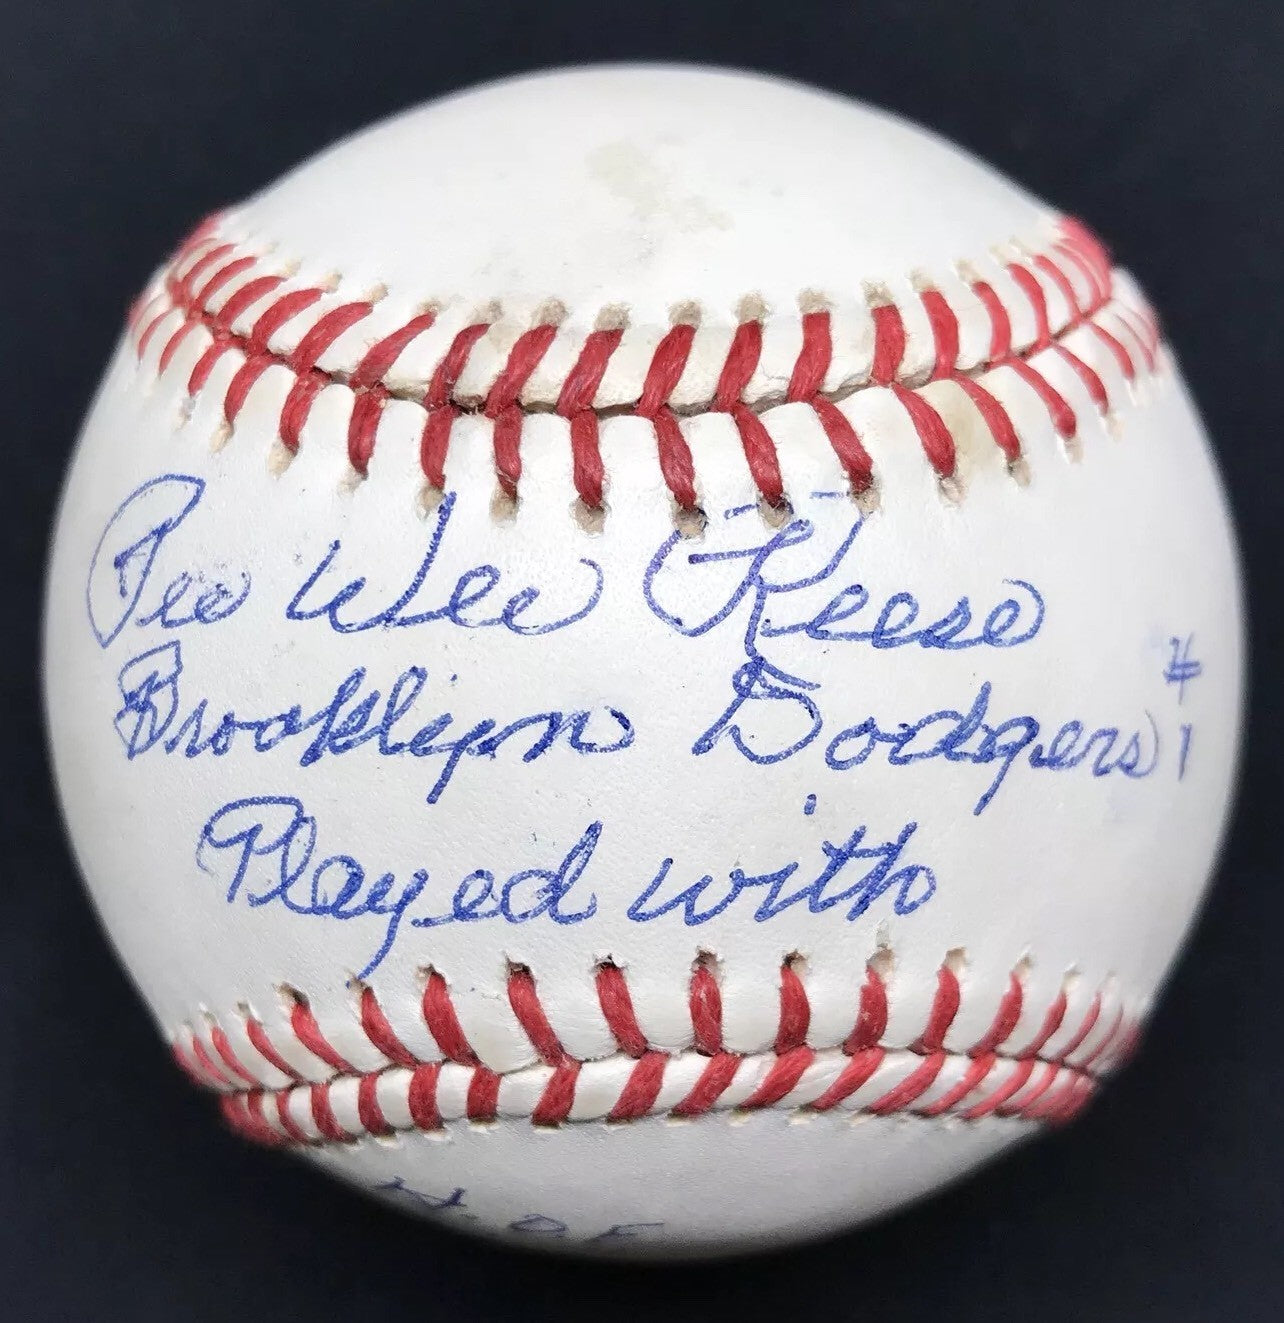 Pee Wee Reese
Brooklyn Dodgers #1
Played with
H.O.F